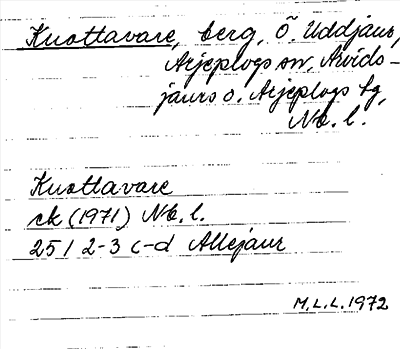 Kuottavare, berg, Ö. Uddjaur,
Arjeplogs sn, Arvids-
jaurs o. Arjeplogs tg,
Nb. l.
Kuottavare
ek (1971) Nb. l.
25 I 2-3 c-d Allejaur
M.L.L. 1972